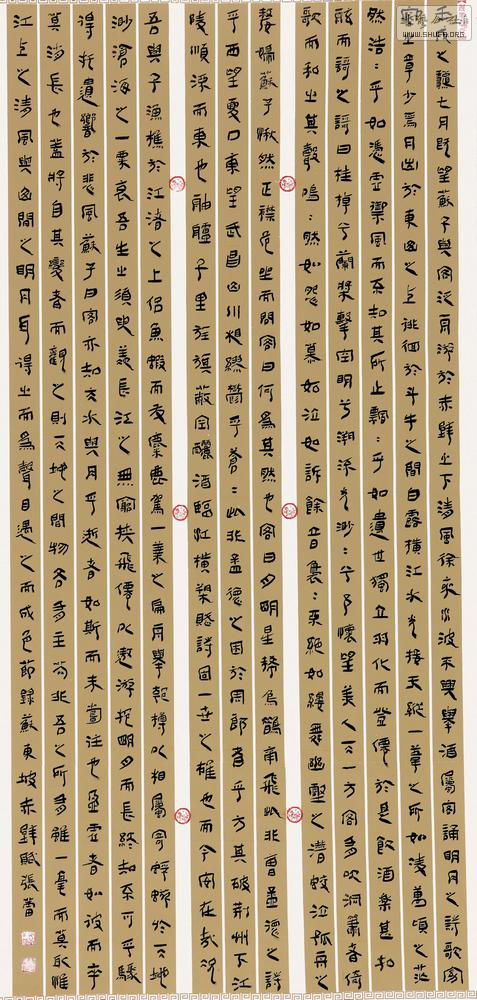 壬戌之龝七月既望蘇子與客泛舟游於赤壁之下清風徐來水波不興舉酒屬客誦明月之詩歌窈
窕之章少焉月出於東山之上徘徊於斗牛之間白露橫江水光接天縱一葦之所如凌萬頃之茫
然浩=乎如憑虛禦風而不知其所止飄=乎如遺世獨立羽化而登僊於是飲酒樂甚扣
舷而謌之謌曰桂棹兮蘭槳擊空明兮溯流光渺=兮予懷望美人天一方客有吹洞簫者倚
歌而和之其聲嗚=然如怨如慕如泣如訴餘音裊=不絕如縷舞幽壑之潛蛟泣孤舟之
嫠婦蘇子愀然正襟危坐而問客曰何為其然也客曰月明星稀烏鵲南飛此非曹孟德之詩
乎西望夏口東望武昌山川相繆鬱乎蒼=此非孟德之困於周郎者乎方其破荊州下江
陵順流而東也舳艫千里旌旗蔽空釃酒臨江橫槊賦詩固一世之雄也而今安在哉況
吾與子漁樵於江渚之上侶魚蝦而友麋鹿駕一葉之扁舟舉匏樽以相屬寄蜉蝣於天地
渺滄海之一粟哀吾生之須臾羨長江之無窮挾飛僊以遨游抱明月而長終知不可乎驟
得托遺響於悲風蘇子曰客亦知夫水與月乎逝者如斯而未嘗往也盈虛者如彼而卒
莫消長也蓋將自其變者而觀之則天地之間物各有主苟非吾之所有雖一毫而莫取惟
江上之清風與山間之明月耳得之而為聲目遇之而成色節錄蘇東坡赤壁賦張蕾
www.SHUFA.ORG